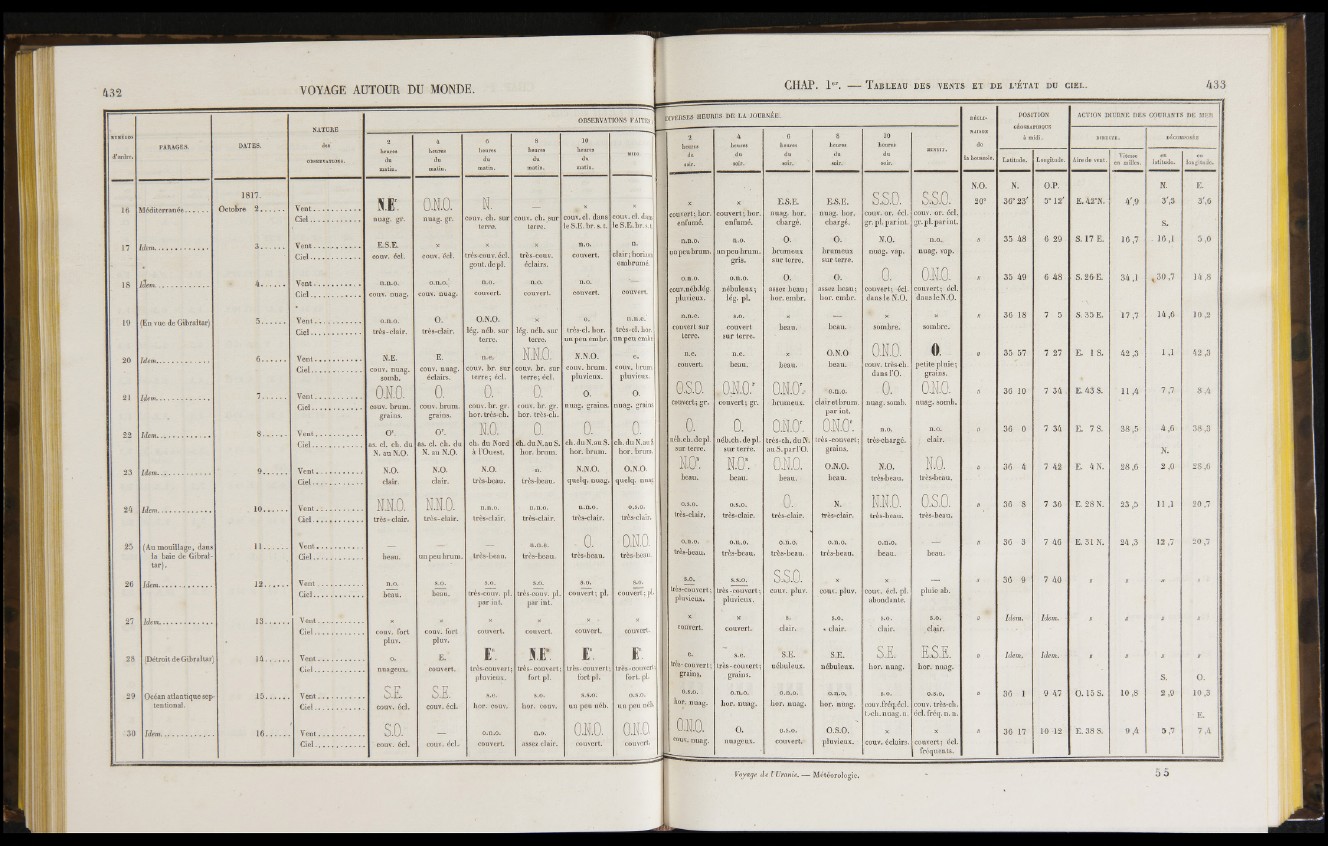 432
VOYAGE AUTOUR DU MONDE.
NUMÉROS d'ordre. PARAGES. DATES. NATURE des OBSERVATIONS. OBSERVATIONS FAITES
2 heures du matin. 4 heures du matin. 6 heures du matin. 8 heures du matin. 10 heures du matin. MIDI
1817.
16 Méditerranée...... Octobre 2...... Vent............ N.E. O.N.O. N. — × ×
Ciel............ nuag. gr. nuag. gr. couv. ch. sur terre. couv. ch. sur terre. couv. cl. dans le S.E. br. s. t. couv. cl. dans le S.E. br. s. t.
17 Idem............ 3...... Vent............ E.S.E. × × × n.o. n.
Ciel............ couv. écl. couv. écl. très-couv. écl. gout. de pl. très-couv. éclairs. couvert. clair; horizon embrumé.
18 Idem............ 4...... Vent............ n.n.o. o.n.o. n.o. n.o. n.o. —
Ciel............ couv. nuag. couv. nuag. couvert. couvert. couvert. couvert.
19 (En vue de Gibraltar) 5...... Vent............ o.n.o. O. O.N.O. × o. n.n.e.
Ciel............ très-clair. très-clair. lég. néb. sur terre. lég. néb. sur terre. très-cl. hor. un peu embr. très-cl. hor. un peu embr.
20 Idem............ 6...... Vent............ N.E. E. n.e. N.N.O. N.N.O. e.
Ciel............ couv. nuag. somb. couv. nuag. éclairs. couv. br. sur terre; écl. couv. br. sur terre; écl. couv. brum. pluvieux. couv. brum. pluvieux.
21 Idem............ 7...... Vent............ O.N.O. O. O. O. O. O.
Ciel............ couv. brum. grains. couv. brum. grains. couv. br. gr. hor. très-ch. couv. br. gr. hor. très-ch. nuag. grains. nuag. grains
22 Idem............ 8...... Vent............ Or. Or. N.O. O. O. O.
Ciel............ as. cl. ch. du N. au N.O. as. cl. ch. du N. au N.O. ch. du Nord à l'Ouest. ch. du N. au S. hor. brum. ch. du N. au S. hor. brum. ch. du N. au S. hor. brum.
23 Idem............ 9...... Vent............ N.O. N.O. N.O. n. N.N.O. O.N.O.
Ciel............ clair. clair. très-beau. très-beau. quelq. nuag. quelq. nuag.
24 Idem............ 10...... Vent............ N.N.O. N.N.O. n.n.o. n.n.o. n.n.o. o.s.o.
Ciel............ très-clair. très-clair. très-clair. très-clair. très-clair. très-clair.
25 (Au mouillage, dans la baie de Gibraltar). 11...... Vent............ — — — n.n.o. O. O.N.O.
Ciel............ beau. un peu brum. très-beau. très-beau. très-beau. très-beau.
26 Idem............ 12...... Vent............ n.o. s.o. s.o. s.o. s.o. s.o.
Ciel............ beau. beau. très-couv. pl. par int. très-couv. pl. par int. couvert; pl. couvert; pl.
27 Idem............ 13...... Vent............ × × × × × ×
Ciel............ couv. fort pluv. couv. fort pluv. couvert. couvert. couvert. couvert.
28 (Détroit de Gibraltar) 14...... Vent............ o. E. E. N.E. E. E.
Ciel............ nuageux. couvert. très-couvert; pluvieux. très-couvert; fort pl. très-couvert; fort pl. très-couvert; fort. pl.
29 Océan atlantique septentional. 15...... Vent............ S.E. S.E. s.e. s.s.o. s.s.o. o.s.o.
Ciel............ couv. écl. couv. écl. hor. couv. hor. couv. un peu néb. un peu néb.
30 Idem............ 16...... Vent............ S.O. — o.n.o. n.o. O.N.O. O.N.O.
Ciel............ couv. écl. couv. écl. couvert. assez clair. couvert. couvert.
CHAP. 1er. — TABLEAU DES VENTS ET DE L'ÉTAT DU CIEL.
433
DIVERSES HEURES DE LA JOURNÉE. DÉCLINAISON de la boussole. POSITION GÉOGRAPHIQUE à midi. ACTION DIURNE DES COURANTS DE MER
2 heures du soir. 4 heures du soir. 6 heures du soir. 8 heures du soir. 10 heures du soir. MINUIT. Latitude. Longitude. DIRECTE. Aire de vent. Vitesse en milles. DÉCOMPOSÉE en latitude. en longitude.
N.O. N. O.P. N. E.
× × E.S.E. E.S.E. S.S.O. S.S.O. 20° 36°23′ 5°12′ E.42°N. 4′,9 3′,3 3′,6
couvert; hor. enfumé. couvert; hor. enfumé. nuag. hor. chargé. nuag. hor. chargé. couv. or. écl. gr. pl. par int. couv. or. écl. gr. pl. par int.
S.
n.n.o. n.o. O. O. N.O. n.o. " 35 48 6 29 S. 17 E. 16 ,7 16 ,1 5 ,0
un peu brum. un peu brum. gris. brumeux sur terre. brumeux sur terre. nuag. vap. nuag. vap.
o.n.o. o.n.o. O. O. O. O.N.O. " 35 49 6 48 S. 26 E. 34 ,1 30 ,7 14 ,8
couv. néb. lég. pluvieux. nébuleux; lég. pl. assez beau; hor. embr. assez beau; hor. embr. couvert; écl. dans le N.O. couvert; écl. dans le N.O.
n.n.e. s.o. × — × × " 36 18 7 5 S. 35 E. 17 ,7 14 ,6 10 ,2
couvert sur terre. couvert sur terre. beau. beau. sombre. sombre.
n.e. n.e. × O.N.O O.N.O. O. " 35 57 7 27 E. 1 S. 42 ,3 1 ,1 42 ,3
couvert. beau. beau. beau. couv. très-ch. dans l'O. petite pluie; grains.
O.S.O. O.N.O.r O.N.O.r o.n.o. O. O.N.O. " 36 10 7 34 E. 43 S. 11 ,4 7 ,7 8 ,4
couvert; gr. couvert; gr. brumeux. clair et brum. par int. nuag. somb. nuag. somb.
O. O. O.N.O.r O.N.O.r n.o. n.o. " 36 0 7 34 E. 7 S. 38 ,5 4 ,6 38 ,3
néb. ch. de pl. sur terre. néb. ch. de pl. sur terre. très-ch. du N. au S. par l'O. très-couvert; grains. très-chargé. clair.
N.
N.O.r N.O.r O.N.O. O.N.O. N.O. N.O. " 36 4 7 42 E. 4 N. 28 ,6 2 ,0 28 ,6
beau. beau. beau. beau. très-beau. très-beau.
o.s.o. o.s.o. O. N. N.N.O. O.S.O. " 36 8 7 36 E. 28 N. 23 ,5 11 ,1 20 ,7
très-clair. très-clair. très-clair. très-clair. très-beau. très-beau.
o.n.o. o.n.o. o.n.o. o.n.o. o.n.o. — " 36 3 7 46 E. 31 N. 24 ,3 12 ,7 20 ,7
très-beau. très-beau. très-beau. très-beau. beau. beau.
s.o. s.s.o. S.S.O. × × — " 36 9 7 40 " " " "
très-couvert; pluvieux. très-couvert; pluvieux. couv. pluv. couv. pluv. couv. écl. pl. abondante. pluie ab.
× × s. s.o. s.o. s.o. " Idem. Idem. " " " "
couvert. couvert. clair. clair. clair. clair.
e. s.e. S.E. S.E. S.E. E.S.E. " Idem. Idem. " " " "
très-couvert; grains. très-couvert; grains. nébuleux. nébuleux. hor. nuag. hor. nuag.
S. O.
o.s.o. o.n.o. o.n.o. o.n.o. s.o. o.s.o. " 36 1 9 47 O. 15 S. 10 ,8 2 ,9 10 ,3
hor. nuag. hor. nuag. hor. nuag. hor. nuag. couv. fréq. écl. t. ch. nuag. n. couv. très-ch. écl. fréq. n. n.
E.
O.N.O. O. o.s.o. O.S.O. × × " 36 17 10 12 E. 38 S. 9 ,4 5 ,7 7 ,4
couv. nuag. nuageux. couvert. pluvieux. couv. éclairs. couvert; écl. fréquents.
Voyage de l'Uranie. — Météorologie.
55